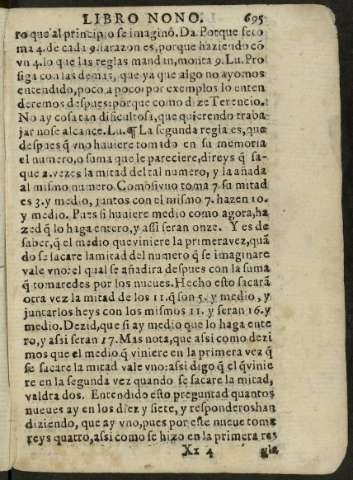 LIBRO NONO. 695
ro que al principio se imaginò. Da. Porque se to
ma 4. de cada 9. la razon es, porque haziendo cõ
vn 4. lo que las reglas mandan, monta 9. Lu. Pro
siga con las demas, que ya que algo no ayomos
entendido, poco, a poco por exemplos lo enten
deremos despues: porque como dize Terencio.
No ay cosa tan dificultosa, que queriendo traba
jar no se alcance. Lu. ¶ La segunda regla es, que
despues q̃ vno huuiere tomado en su memoria
el numero, o suma que le pareciere, direys q̃ sa-
que 2. vezes la mitad del tal numero, y la añada
al mismo numero. Como si vno toma 7. su mitad
es 3. y medio, juntos con el mismo 7. hazen 10.
y medio. Pues si huuiere medio como agora, ha
zed q̃ lo haga entero, y assi seran onze. Y es de
saber, q̃ el medio que viniere la primera vez, quã
do se sacare la mitad del numero q̃ se imaginare
vale vno: el qual se añadira despues con la suma
q̃ tomaredes por los nueues. Hecho esto sacarà
otra vez la mitad de los 11. q̃ son 5. y medio, y
juntarlos heys con los mismos 11. y seran 16. y
medio. Dezid, que si ay medio que lo haga ente
ro, y assi seran 17. Mas nota, que assi como dezi
mos que el medio q̃ viniere en la primera vez q̃
se sacare la mitad vale vno: assi digo q̃ el q̃ vinie
re en la segunda vez quando se sacare la mitad,
valdra dos. Entendido esto preguntad quantos
nueues ay en los diez y siete, y responderos han
diziendo, que ay vno, pues por este nueue toma
reys quatro, assi como se hizo en la primera re
Xx 4 gla